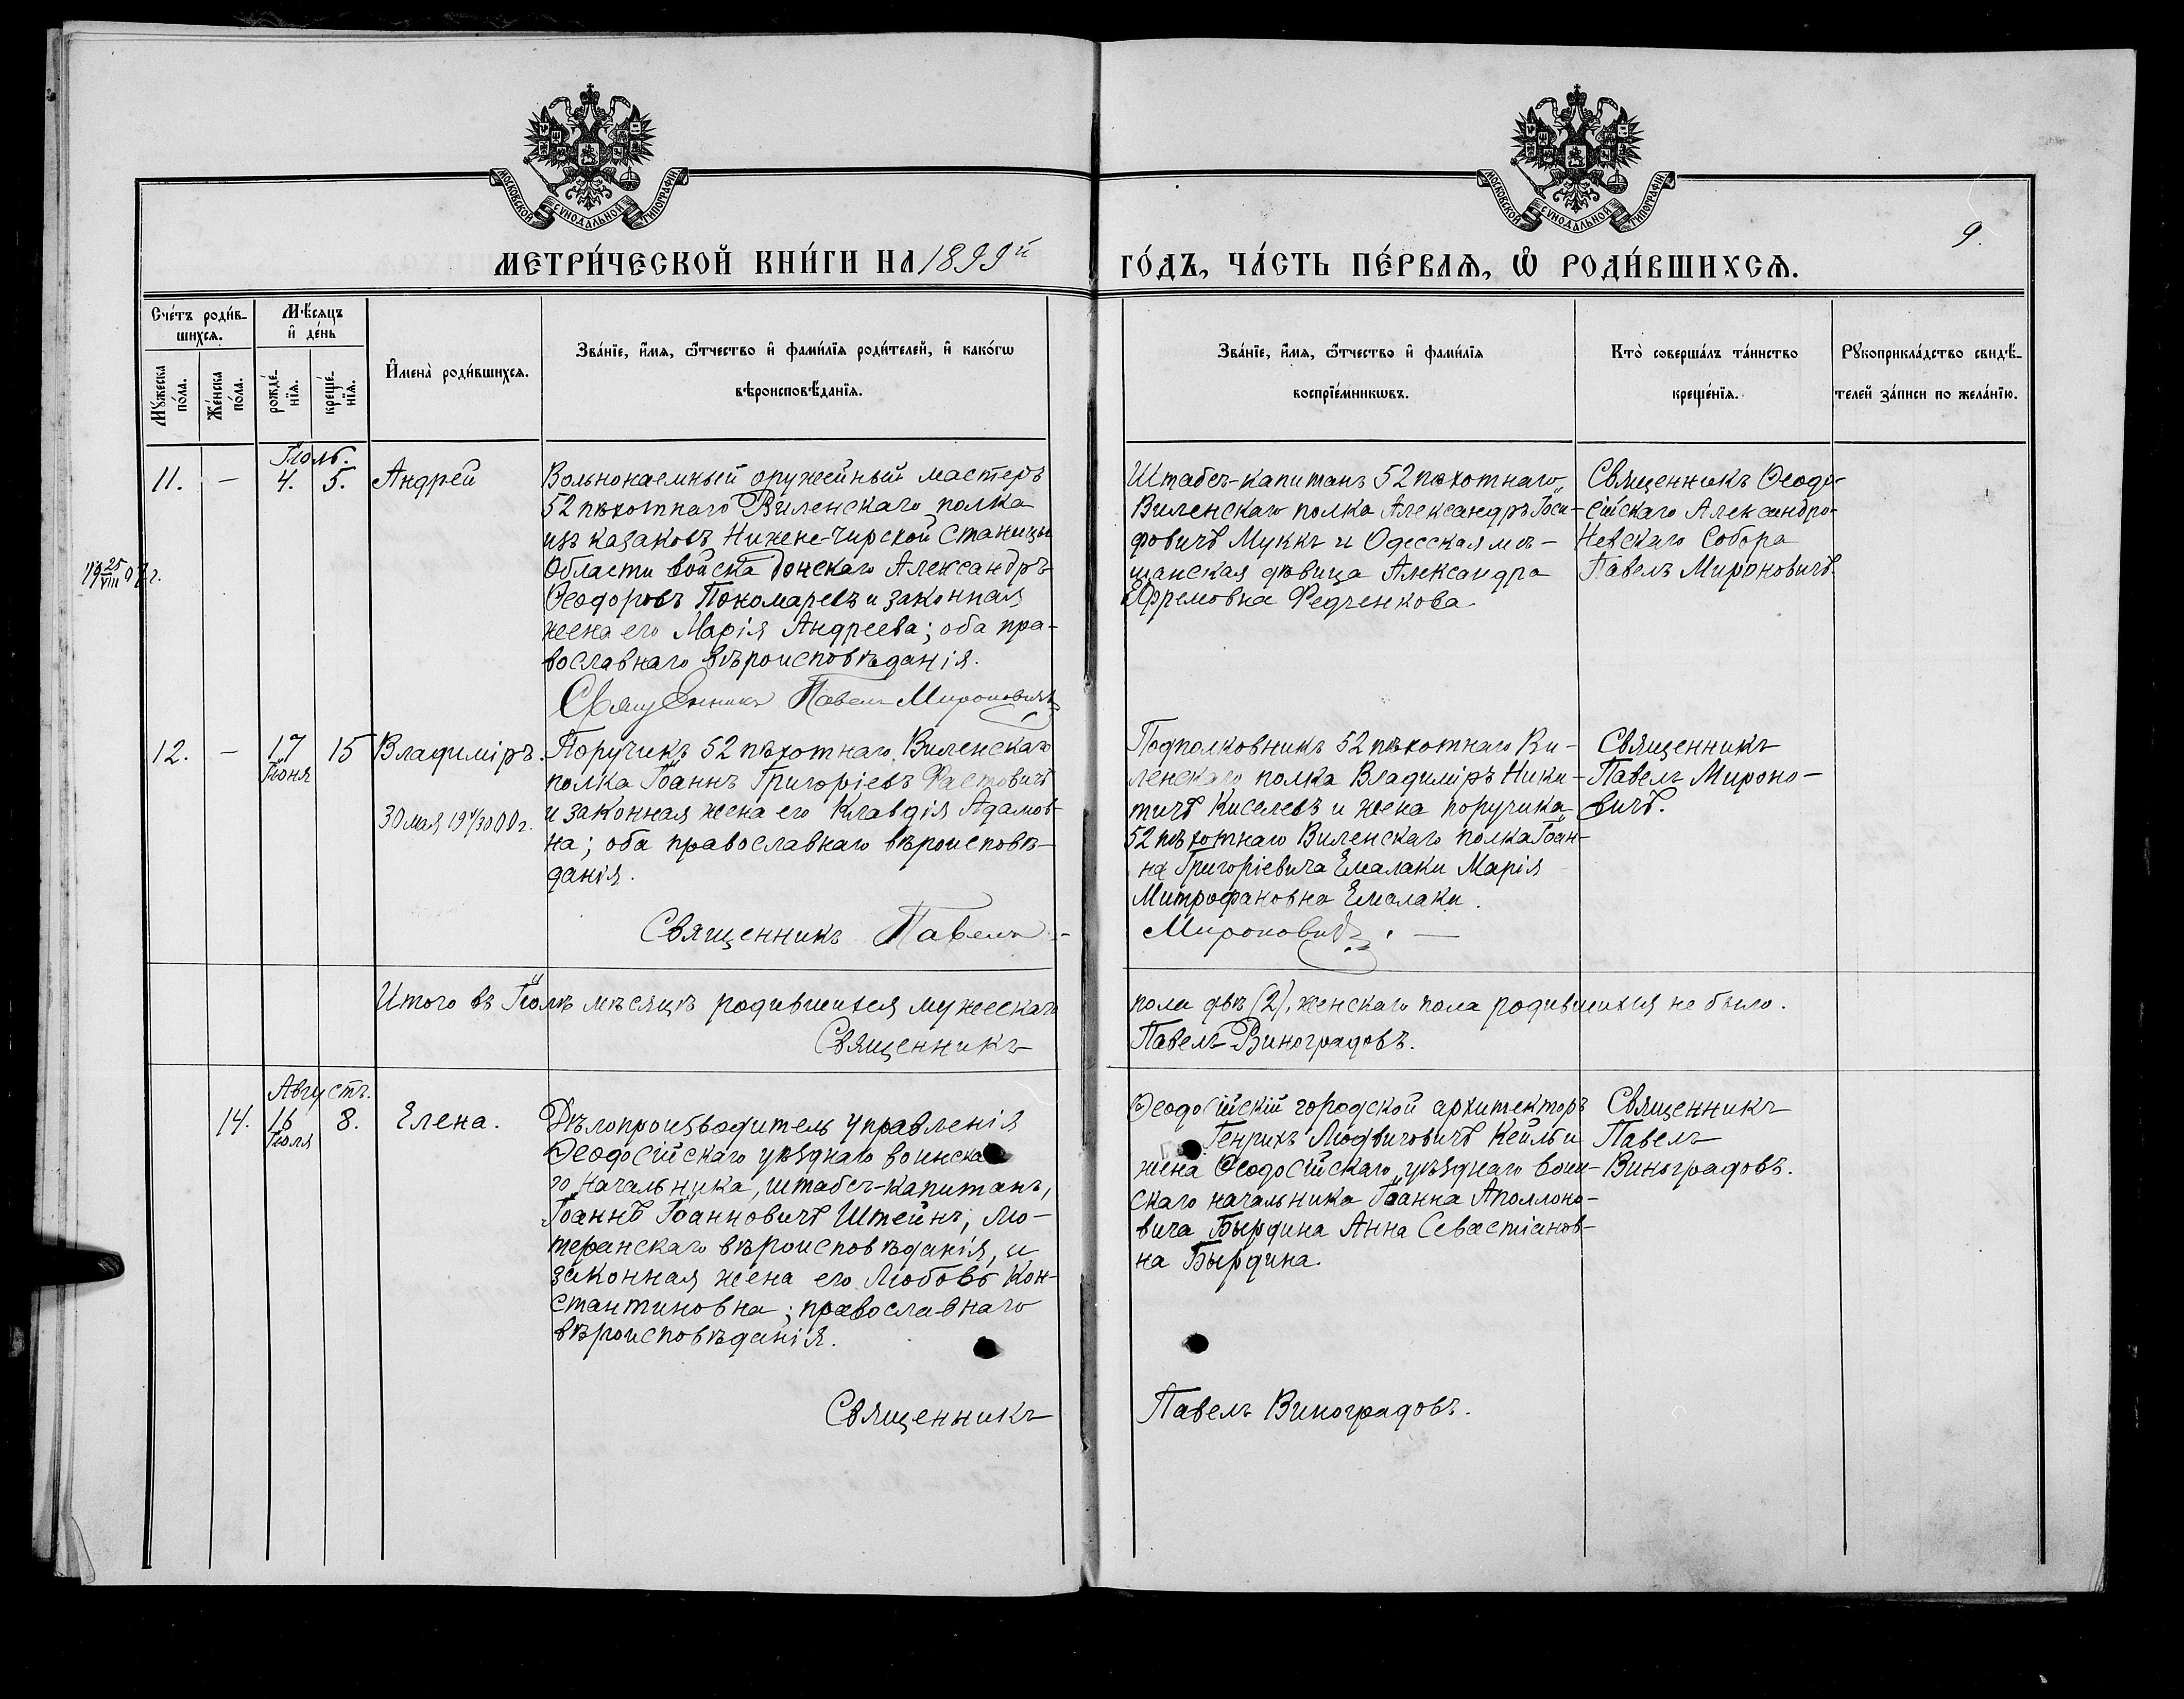 МОСКОВСКОЙ СУНОДАЛЬНОЙ ТИПОГРАФІИ
МОСКОВСКОЙ СУНОДАЛЬНОЙ ТИПОГРАФІИ
9.
МЕТРИ́ЧЕСКОЙ КНИ́ГИ НА 1899й
ГО́ДЪ, ЧА́СТЬ ПЕ́РВАѦ, Ѡ҆ РОДИ́ВШИХСѦ.
Сче́тъ роди́в-
шихсѧ.
Мꙋ́жеска по́ла.
Же́нска по́ла.
Мѣ́сяцъ
и҆ де́нь
рожде́-
нїѧ.
креще́-
нїѧ.
И҆мена̀ роди́вшихсѧ.
Зва́нїе, и҆́мѧ, ѻ҆́тчество и҆ фами́лїѧ роди́телей, и҆ како́гѡ
вѣроисповѣ́данїѧ.
Зва́нїе, и҆́мѧ, ѻ҆́тчество и҆ фами́лїѧ
воспрїе́мникѡвъ.
Кто̀ соверша́лъ та́инство
креще́нїѧ.
Рꙋкоприкла́дство свидѣ́-
телей за́писи по жела́нїю.
Іюль.
11. – 4. 5. Андрей
Вольнонаемный оружейный мастеръ
52 пѣхотнаго Виленскаго полка
изъ казаковъ Нижне-Чирской станицы
Области войска Донскаго Александръ
Ѳеодоровъ Пономаревъ и законная
жена его Марія Андреева; оба пра-
вославнаго вѣроисповѣданія.
Священникъ Павелъ Мироновичъ
Штабсъ-капитанъ 52 пѣхотнаго
Виленскаго полка Александръ Іоси-
фовичъ Муккъ и Одесская мѣ-
щанская дѣвица Александра
Ефремовна Федченкова
Священникъ Ѳеодо-
сійскаго Александро-
Невскаго Собора
Павелъ Мироновичъ.
12. – 17 Іюня 15 Владиміръ.
30 мая 19
Поручикъ 52 пѣхотнаго Виленскаго
полка Іоаннъ Григоріевъ Фастовичъ
и законная жена его Клавдія Адамов-
на; оба православнаго вѣроисповѣ-
данія.
Священникъ Павелъ
Подполковникъ 52 пѣхотнаго Ви-
ленскаго полка Владиміръ Ники-
тичъ Киселевъ и жена поручика
52 пѣхотнаго Виленскаго полка Іоан-
на Григоріевича Емалаки Марія
Митрофановна Емалаки.
Мироновичъ. —
Священникъ
Павелъ Мироно-
вичъ.
Итого въ Іюлѣ мѣсяцѣ родившихся мужескаго
пола двѣ (2), женскаго пола родившихся не было.
Священникъ
Павелъ Виноградовъ.
Августъ.
14. 16 Іюля 8. Елена.
Дѣлопроизводитель управленія
Ѳеодосійскаго уѣзднаго воинска
го начальника, штабсъ-капитанъ,
Іоаннъ Іоанновичъ Штейнъ, лю-
теранскаго вѣроисповѣданія, и
законная жена его Любовь Кон-
стантиновна; православнаго
вѣроисповѣданія.
Священникъ
Ѳеодосійскій городской архитекторъ
Генрихъ Людвиговичъ Кейль и
жена Ѳеодосійскаго уѣзднаго воин-
скаго начальника Іоанна Аполлоно-
вича Бырдина Анна Севастіанов-
на Бырдина.
Павелъ Виноградовъ.
Священникъ
Павелъ
Виноградовъ.